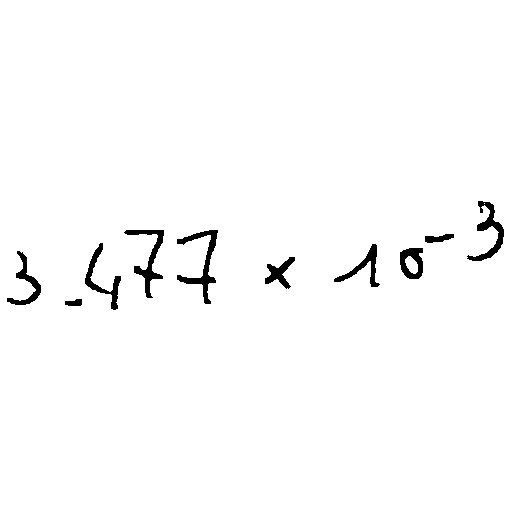 3.477 × 10⁻³